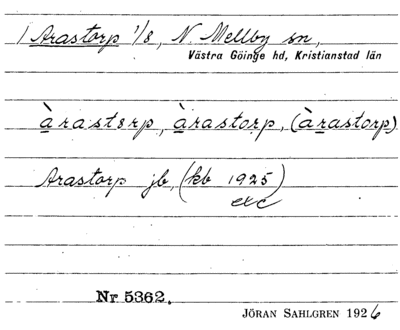 1 Arastorp 1/8, N. Mellby sn,
Västra Göinge hd, Kristianstad län
àrastərp, àrastorp, (àrastorp)
Arastorp jb, (kb 1925)
exc
Nr 5362.
JÖRAN SAHLGREN 1926